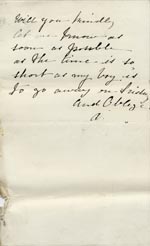 Will you kindly
let me know as
soon as possible
as the time is so
short as my boy is
to go away on Friday
And Oblige